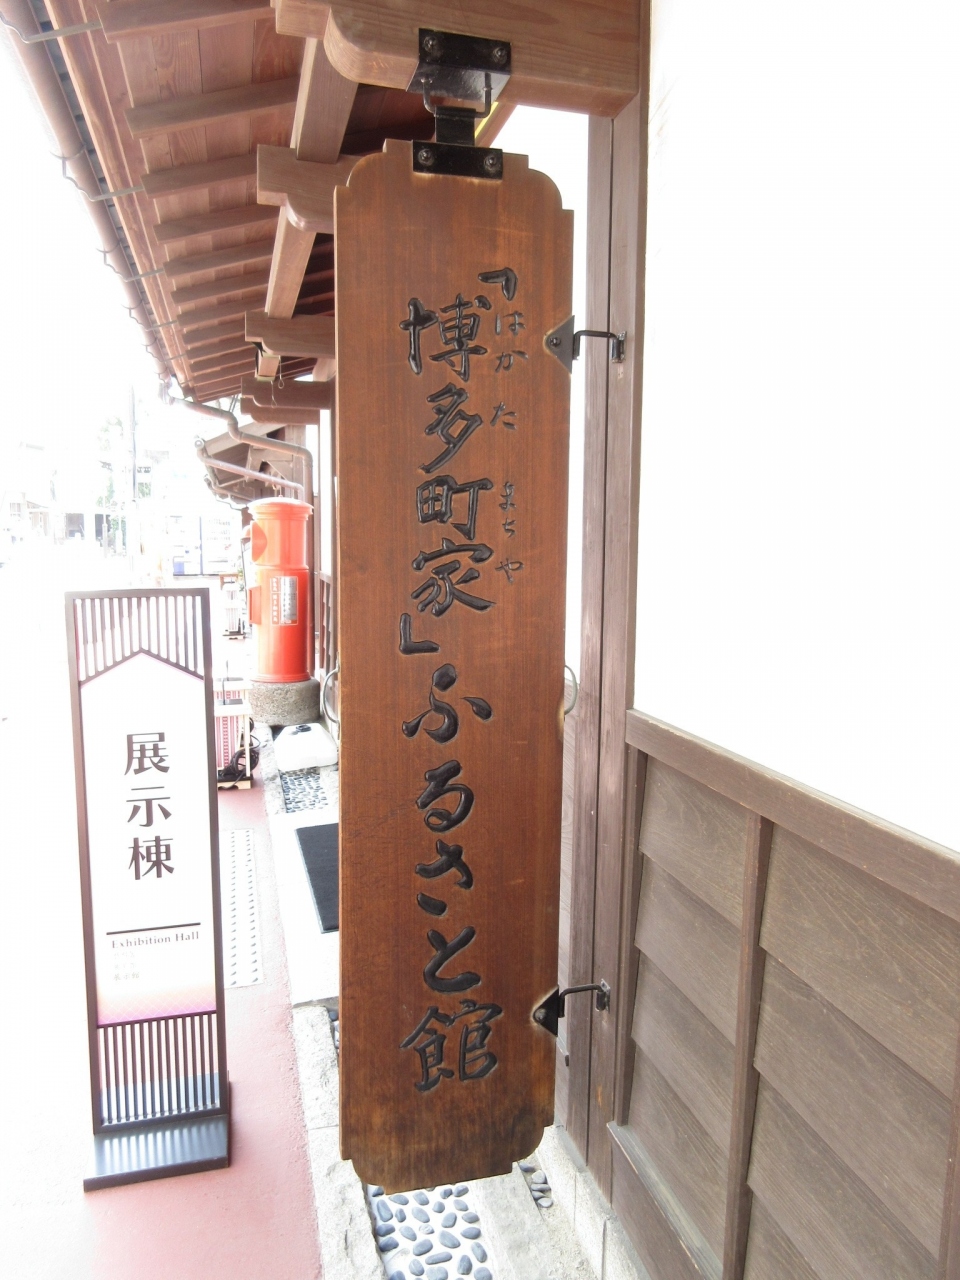 「博多町家」ふるさと館
はかた まちや
展示棟
Exhibition Hall